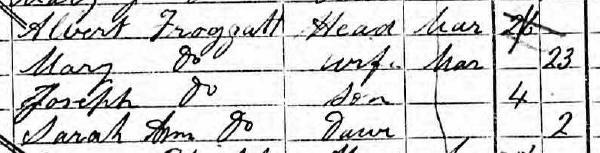 Albert Froggatt Head Mar 26
Mary Do Wife Mar 23
Joseph Do Son 4
Sarah Ann Do Daur 2